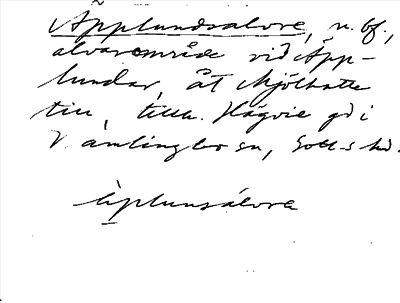 Äpplundsalvore, n. bf.,
alvarområde vid Äpp-
lundar, åt Mjölhatte
till, tillh. Hägvie gd i
Vamlingbo sn, Gotl-s hd.
äplunsalvore